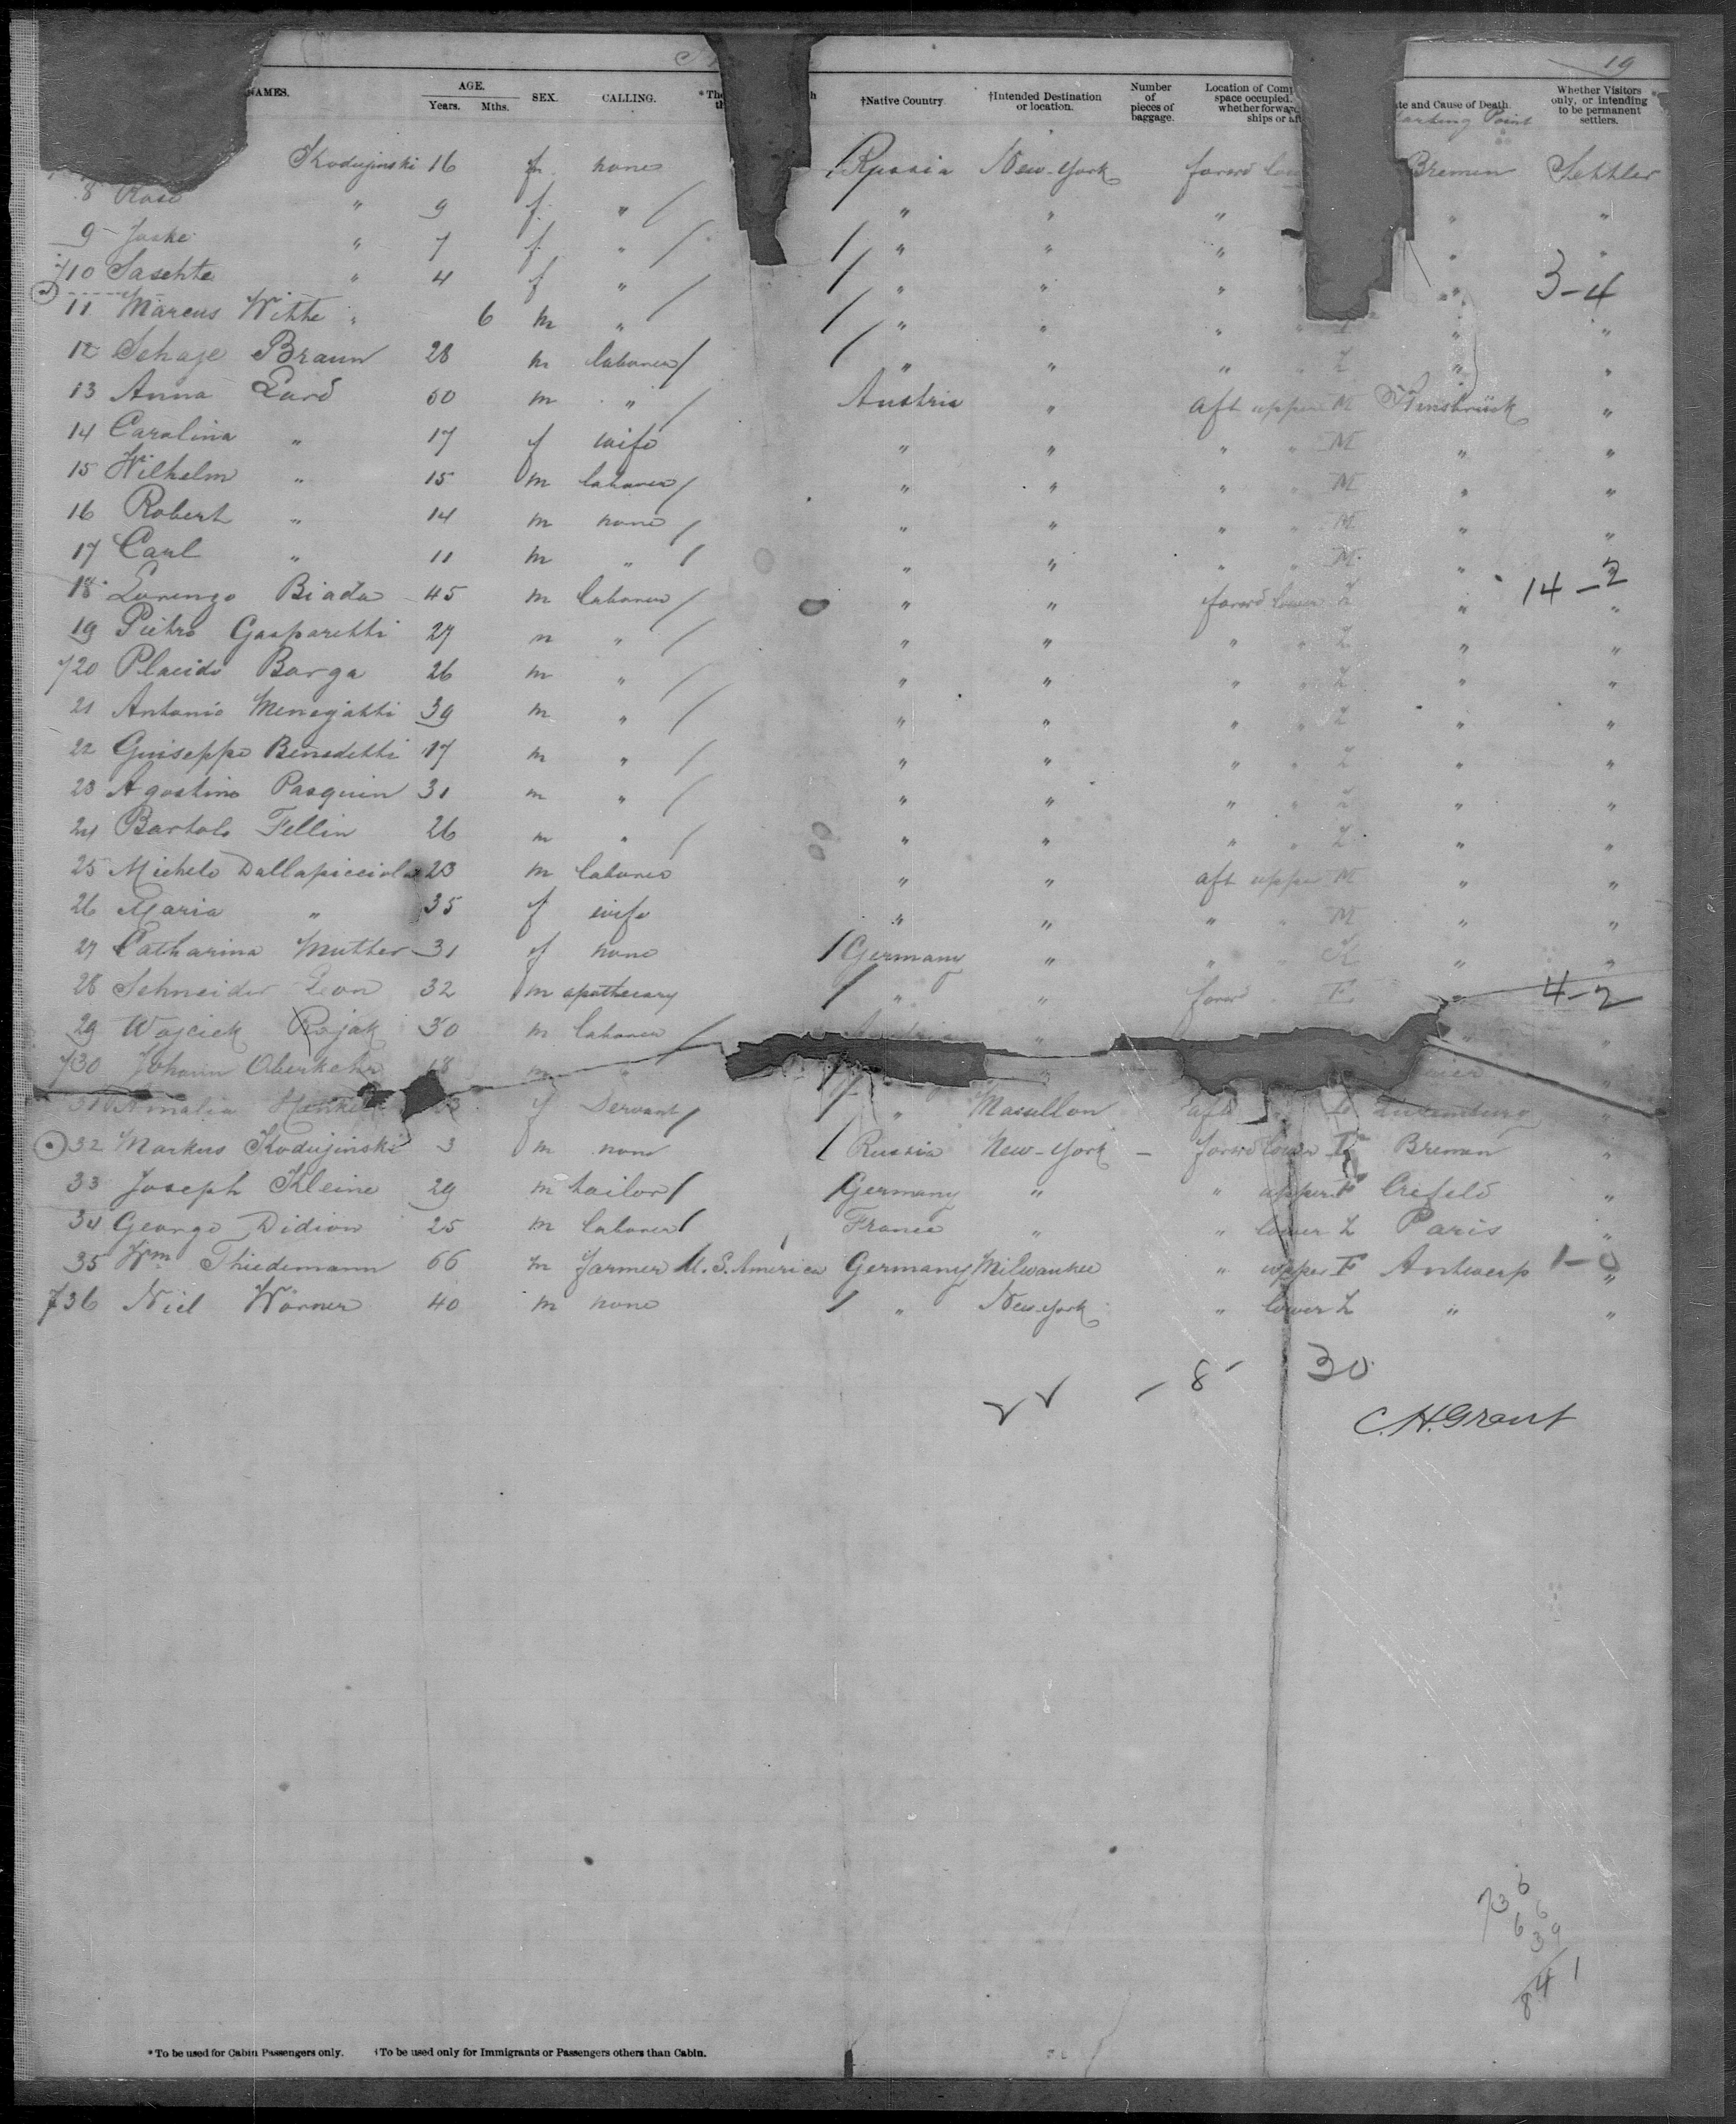 19
NAMES. AGE. Years. Mths. SEX. CALLING. *The †Native Country. †Intended Destination or location. Number of pieces of baggage. Location of Comp space occupied. whether forward ships or aft te and Cause of Death. Starting Point Whether Visitors only, or intending to be permanent settlers.
Kodujinski 16 f. none / Russia New-York forwd low Bremen Settler
8 Rose " 9 f. " / " " " " "
9 Jaske " 7 f. " / / " " " " "
710 Saschte " 4 f " / / " " " " " 3-4
11 Marcus Witte " 6 m " / / " " " " " "
12 Schaje Braun 28 m laborer / / " " " " Z " "
13 Anna Lard 50 m " / Austria " aft upper M Innsbrück "
14 Carolina " 17 f wife " " " " M " "
15 Wilhelm " 15 m laborer / " " " " M " "
16 Robert " 14 m none / " " " " M " "
17 Carl " 11 m " / " " " " M " "
18 Lorengo Biada 45 m laborer / " " forwd lower Z " 14-2 "
19 Pietro Gasparetti 27 m " / " " " " Z " "
720 Placido Barga 26 m " / " " " " Z " "
21 Antonio Menegatti 39 m " / " " " " Z " "
22 Guiseppe Benedetti 17 m " / " " " " Z " "
23 Agostino Pasquin 31 m " / " " " " Z " "
24 Bartolo Fellin 26 m " / " " " " Z " "
25 Michele Dallapicciola 23 m laborer " " aft upper M " "
26 Maria " 35 f wife " " " " M " "
27 Catharina Mutter 31 f none / Germany " " " K " "
28 Schneider Leon 32 m apothecary / " " forwd " F " 4-2
29 Wojciek Rojak 30 m laborer / " " "
730 Johann Oberkehr 18 m " " "
31 Amalia f Servant / / " Masullon aft " Luxemburg "
32 Markus Kodujinski 3 m none / Russia New-York - forwd lower Bremen "
33 Joseph Kleine 29 m tailor / / Germany " " upper F Crefeld "
34 George Didion 25 m laborer / France " " lower Z Paris "
35 Wm Thiedemann 66 m farmer U.S. America Germany Milwaukee " upper F Antwerp 1-0 "
736 Niel Wörner 40 m none / " New-York " lower Z " "
8 30
C.H. Grant
736
66
39
841
*To be used for Cabin Passengers only. †To be used only for Immigrants or Passengers others than Cabin.